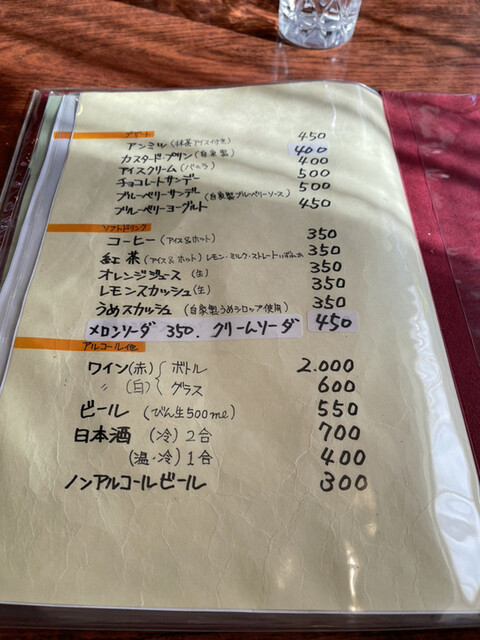 デザート
アンミツ(抹茶アイス付き) 450
カスタード・プリン(自家製) 400
アイスクリーム(バニラ) 400
チョコレートサンデー 500
ブルーベリーサンデー(自家製ブルーベリーソース) 500
ブルーベリーヨーグルト 450
ソフトドリンク
コーヒー(アイス&ホット) 350
紅茶(アイス&ホット)レモン・ミルク・ストレート 350
オレンジジュース(生) 350
レモンスカッシュ(生) 350
うめスカッシュ(自家製うめシロップ使用) 350
メロンソーダ 350. クリームソーダ 450
アルコール他
ワイン(赤) ボトル 2.000
〃 (白) グラス 600
ビール (びん生500ml) 550
日本酒 (冷) 2合 700
(温・冷) 1合 400
ノンアルコールビール 300